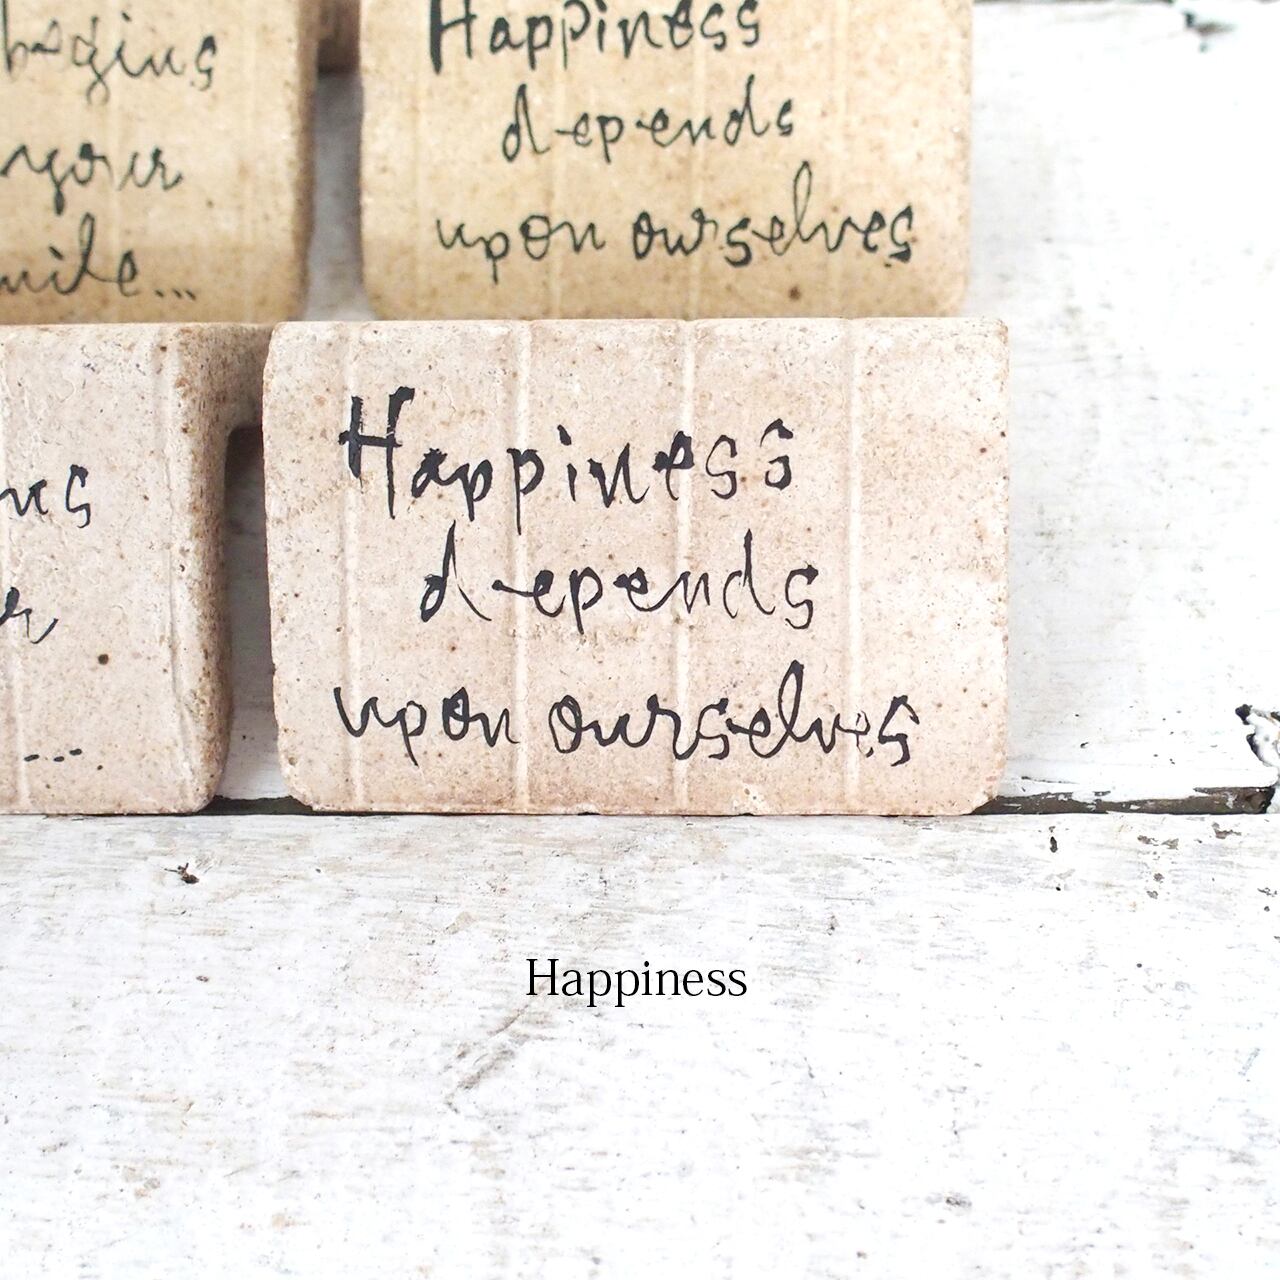 begins
your
Happiness
depends
upon ourselves
Happiness
depends
upon ourselves
Happiness